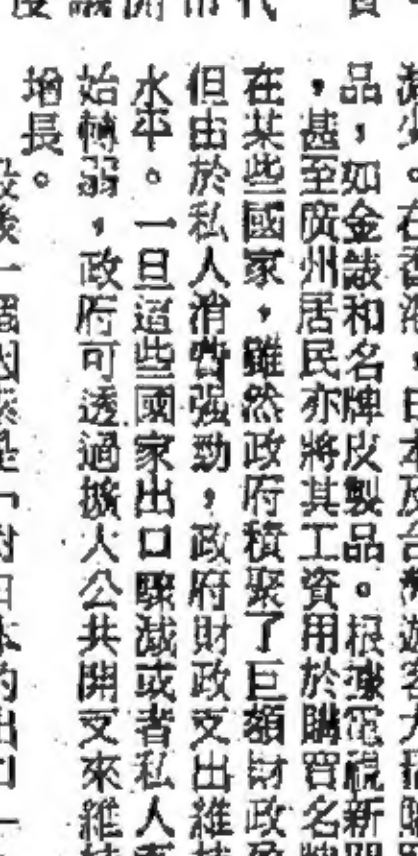 減少。在香港，日本及台灣遊客大
品，如金錶和名牌皮製品。根據電視新聞
，甚至廣州居民亦將其工資用於購買名牌
在某些國家，雖然政府積聚了巨額財政盈
但由於私人消費強勁，政府財政支出維持
水平。一旦這些國家出口驟減或者私人
始轉弱，政府可透過擴大公共開支來維持
增長。
最後一個因素是「對日本的出口